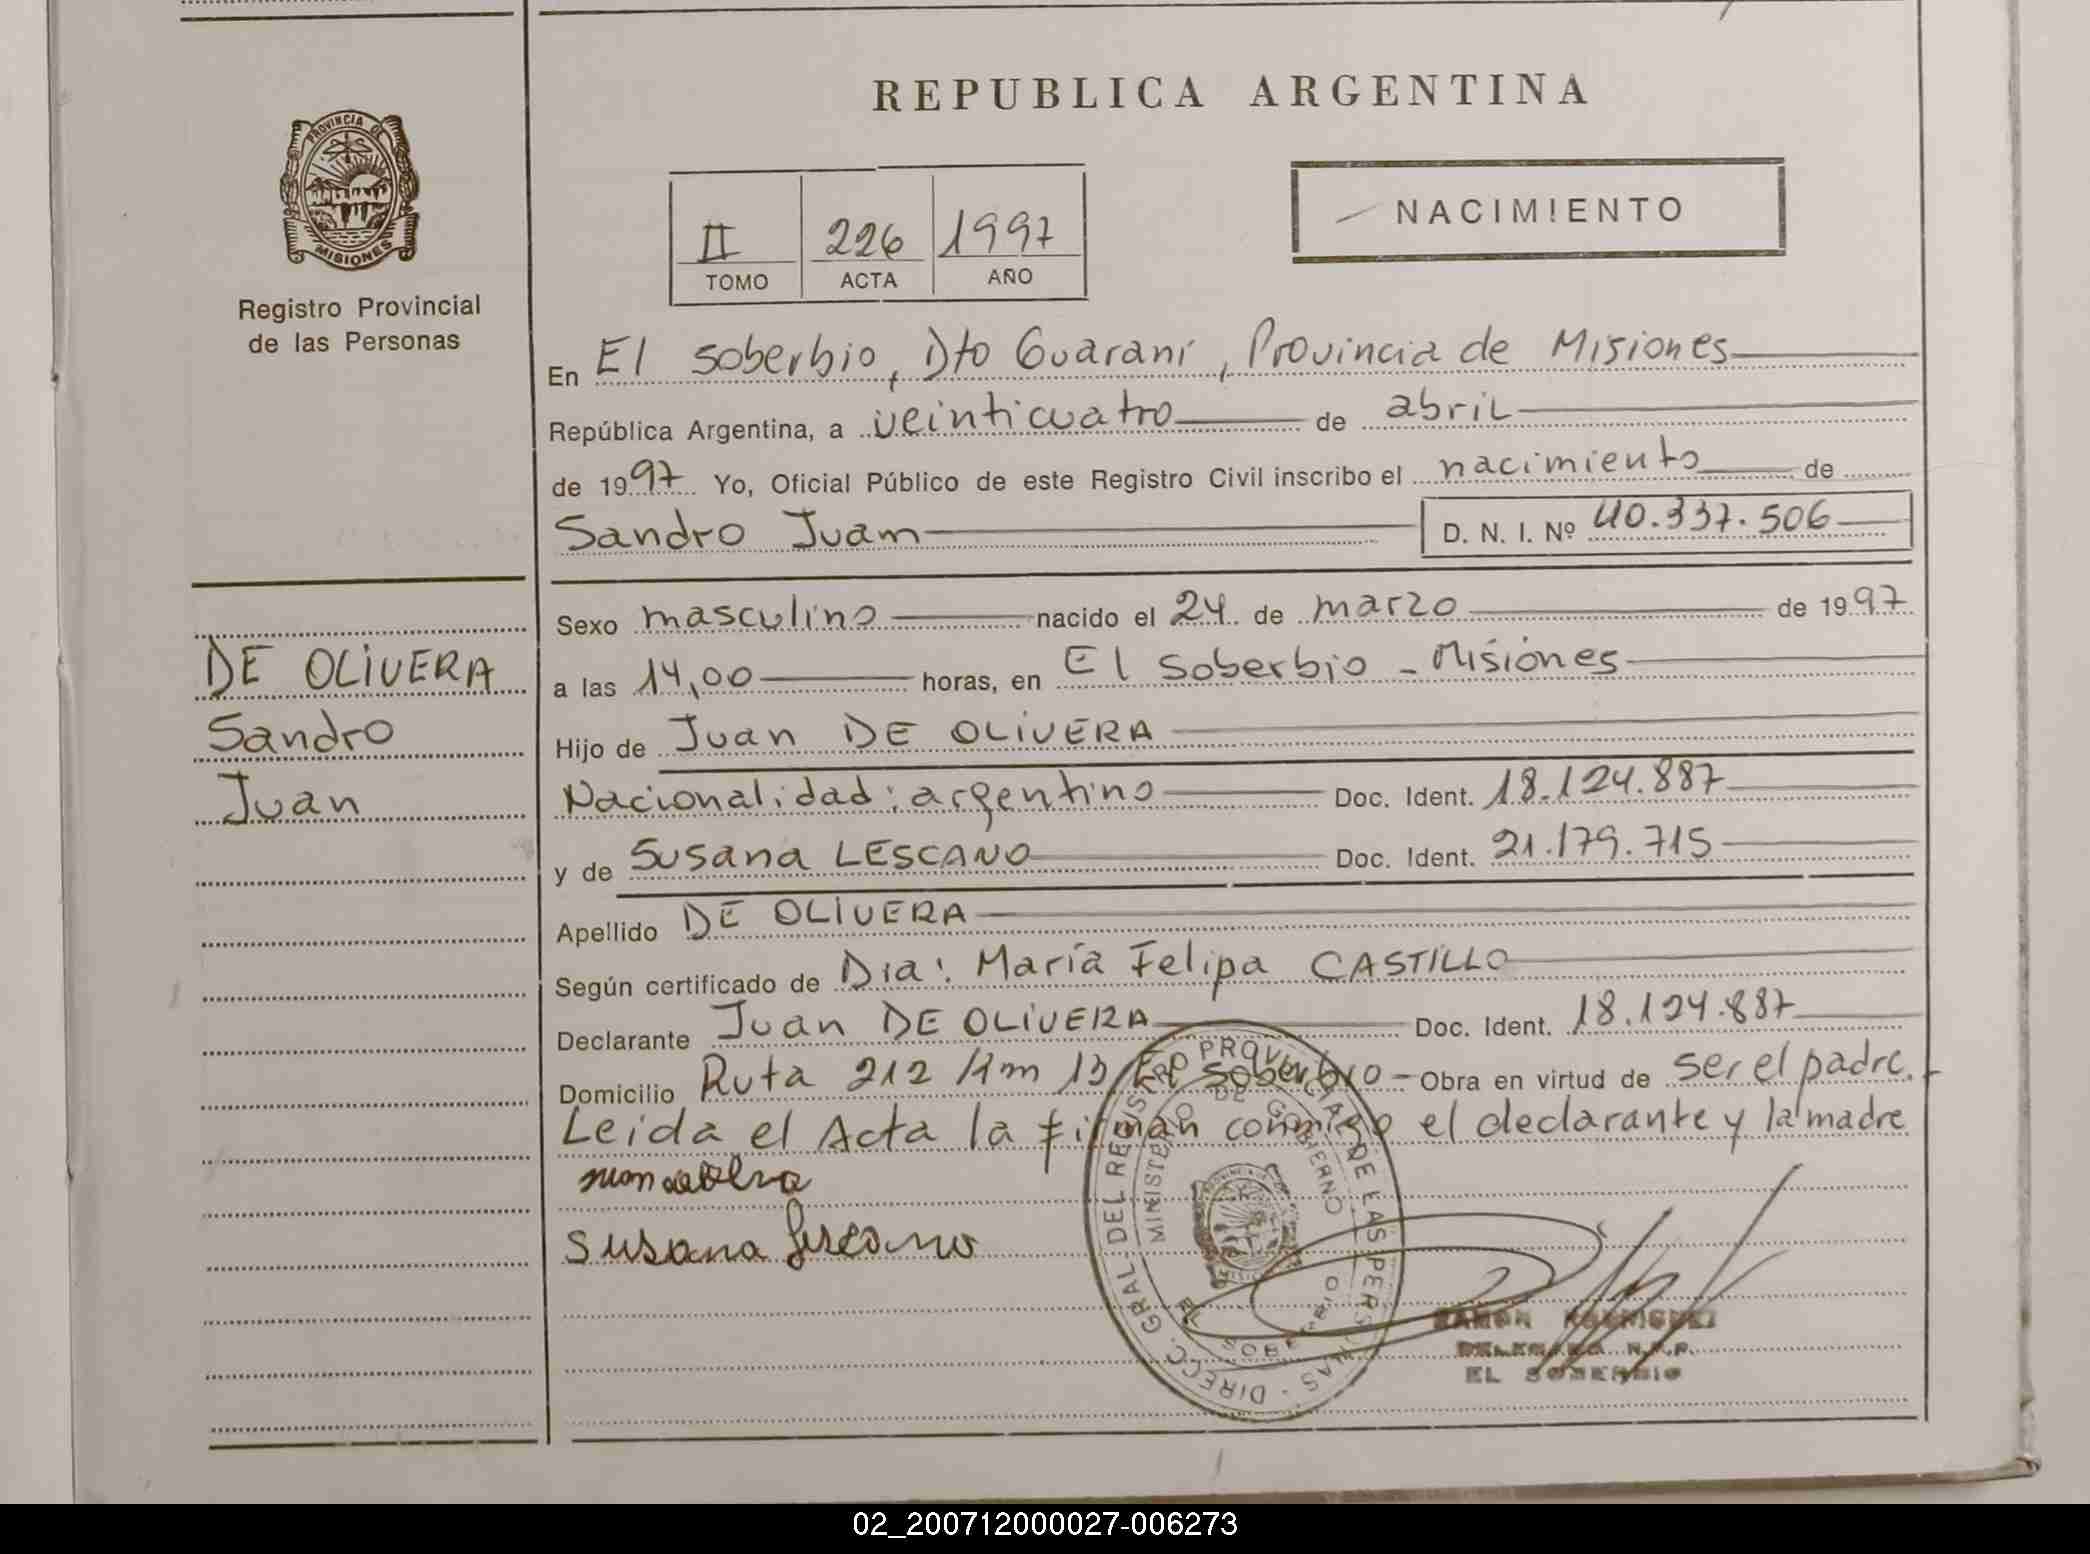 REPUBLICA ARGENTINA
PROVINCIA DE MISIONES
Registro Provincial
de las Personas
II 226 1997
TOMO ACTA AÑO
NACIMIENTO
En El Soberbio, Dto Guaraní, Provincia de Misiones
República Argentina, a veinticuatro de abril
de 1997 Yo, Oficial Público de este Registro Civil inscribo el nacimiento de
Sandro Juan D. N. I. Nº 40.337.506
Sexo masculino nacido el 24 de marzo de 1997
a las 14,00 horas, en El Soberbio - Misiones
Hijo de Juan DE OLIVERA
Nacionalidad: argentino Doc. Ident. 18.124.887
y de Susana LESCANO Doc. Ident. 21.179.715
Apellido DE OLIVERA
Según certificado de Dra: María Felipa CASTILLO
Declarante Juan DE OLIVERA Doc. Ident. 18.124.887
Domicilio Ruta 212 Km 13 El Soberbio - Obra en virtud de ser el padre.
Leida el Acta la firman conmigo el declarante y la madre
Susana Lescano
DE OLIVERA
Sandro
Juan
DIRECC. GRAL. DEL REGISTRO PROVINCIAL DE LAS PERSONAS
MINISTERIO DE GOBIERNO
EL SOBERBIO
RAMON
DELEGADO R.P.P.
EL SOBERBIO
02_200712000027-006273